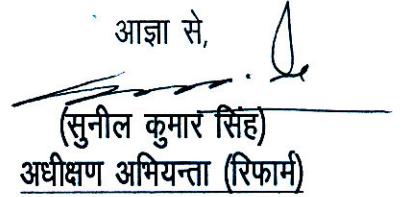 आज्ञा से,
(सुनील कुमार सिंह)
अधीक्षण अभियन्ता (रिफार्म)